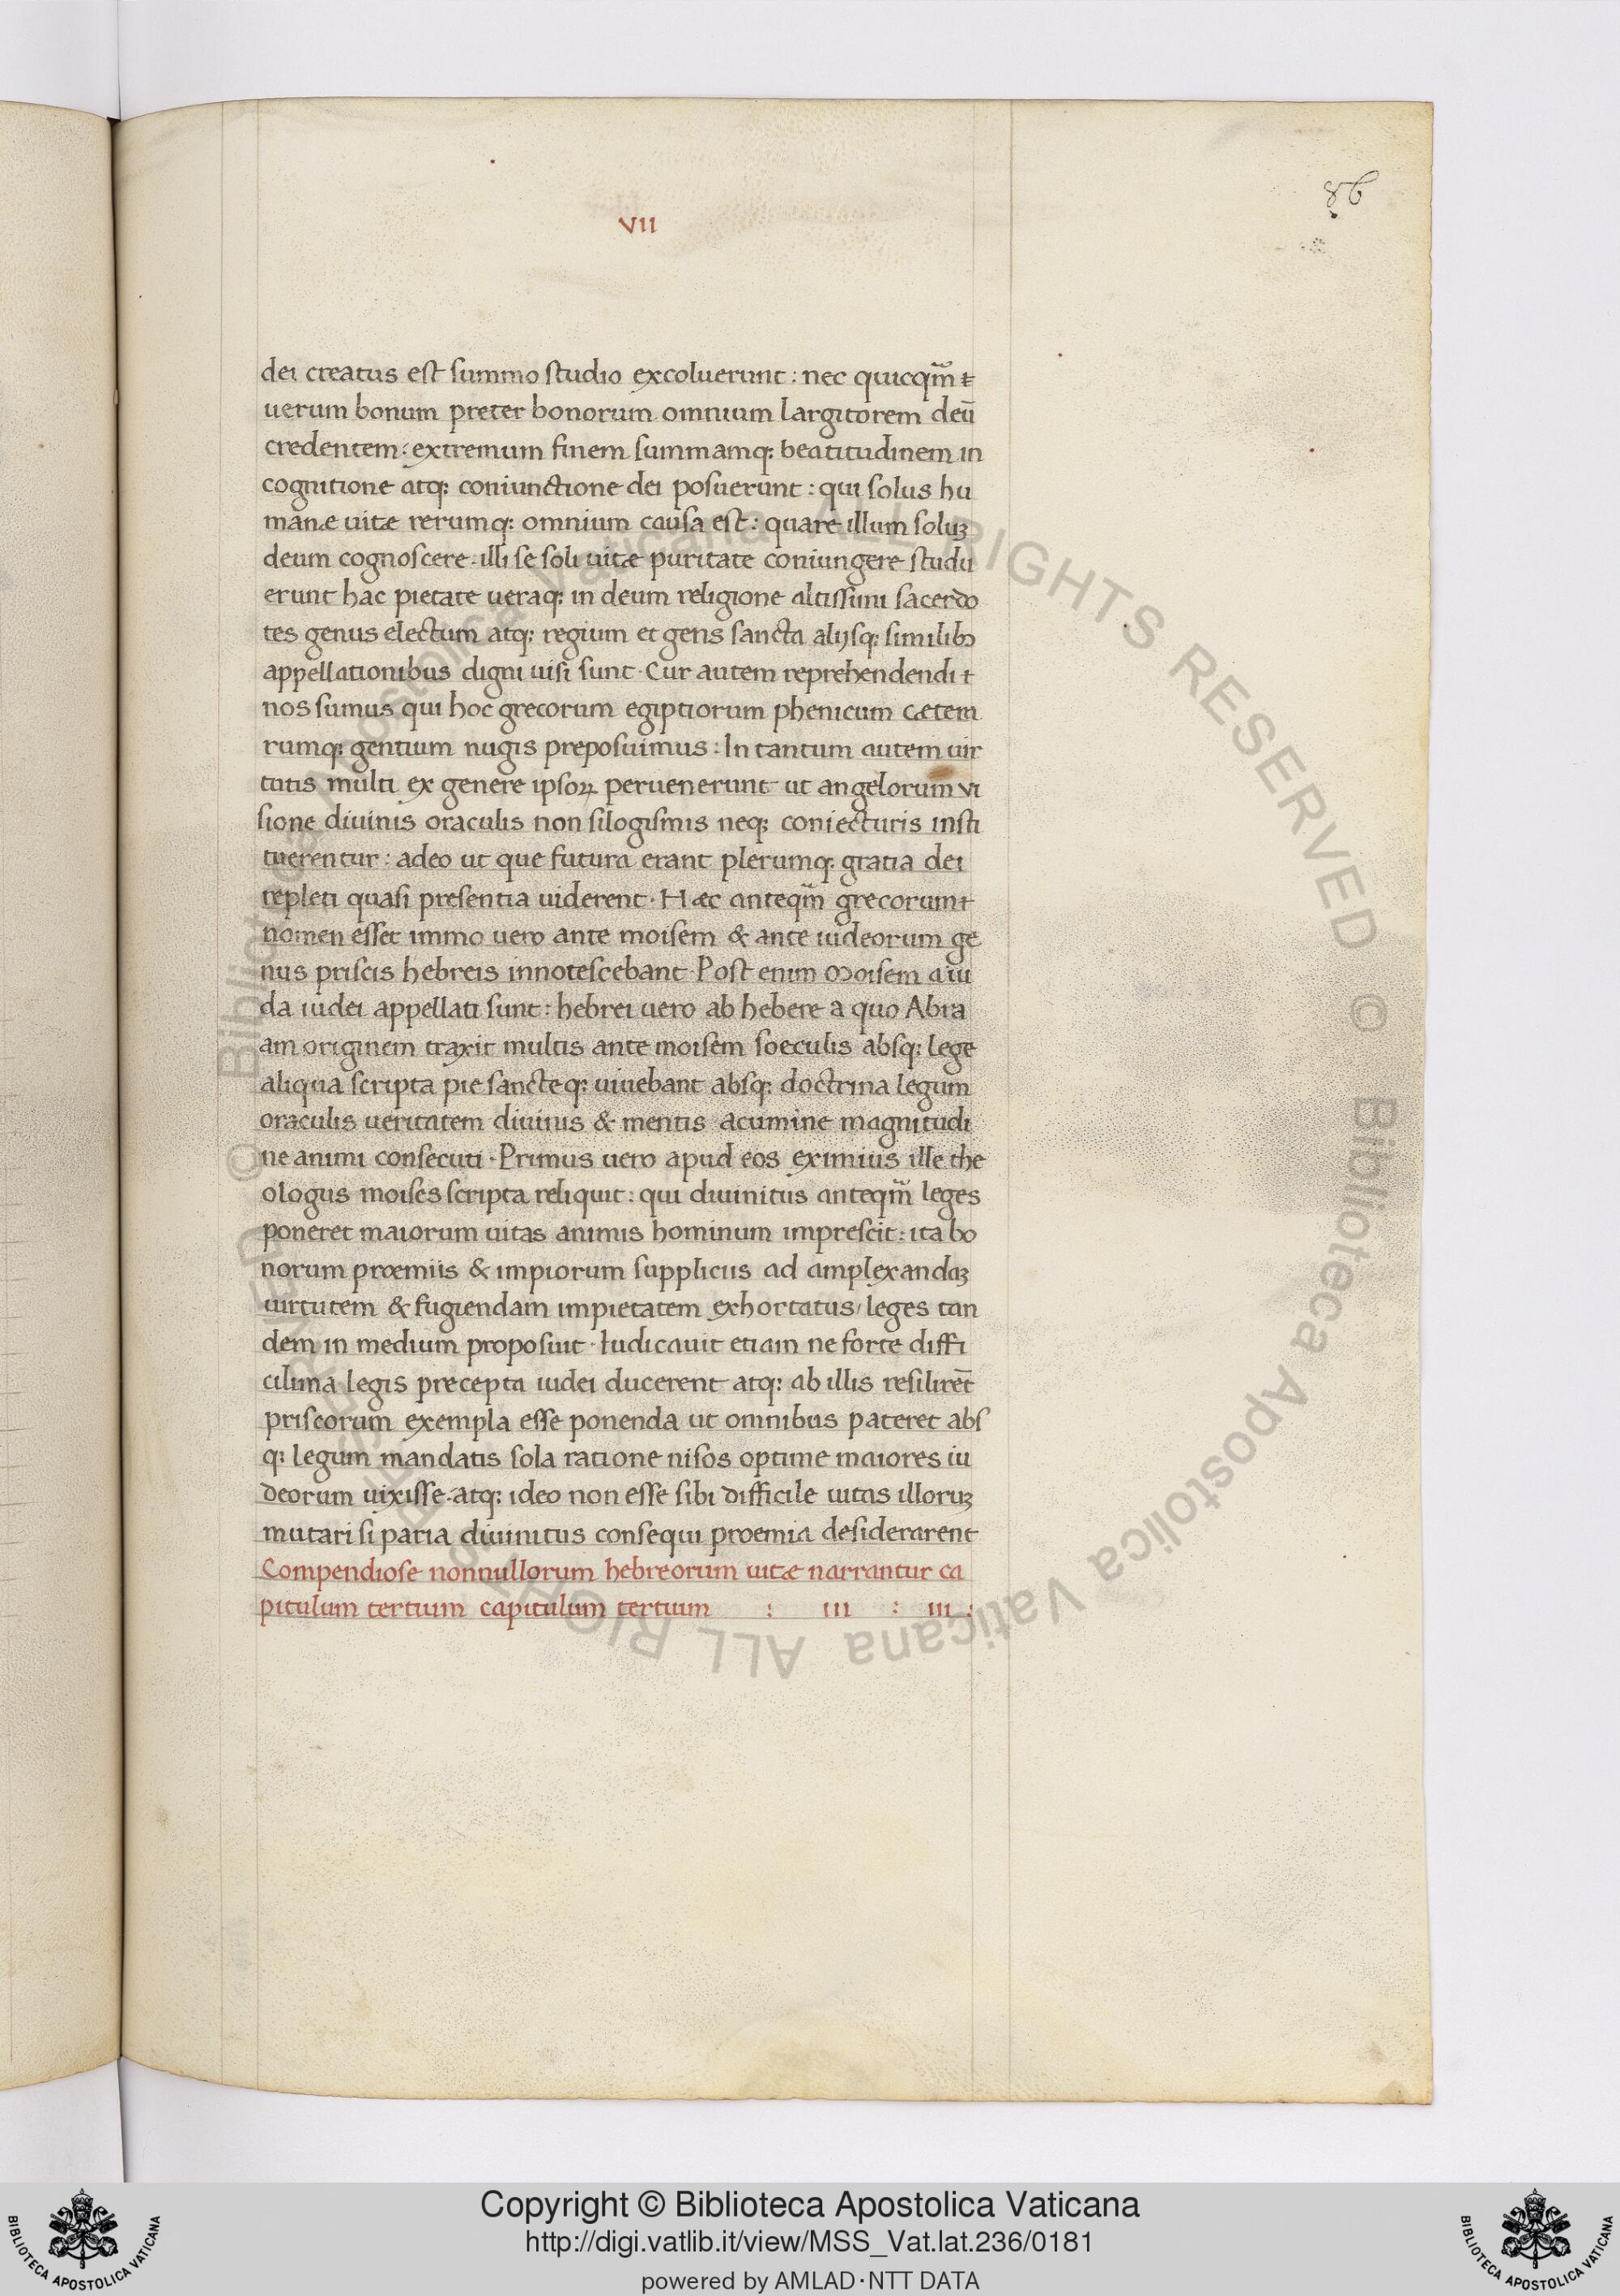 86
VII
dei creatus est summo studio excoluerunt : nec quicqm̃ ł
uerum bonum preter bonorum omnium largitorem deū
credentem : extremum finem summamq; beatitudinem in
cognitione atq; coniunctione dei posuerunt : qui solus hu
manæ uitæ rerumq; omnium causa est : quare illum soluꝫ
deum cognoscere . illi se soli uitæ puritate coniungere studu
erunt hac pietate ueraq; in deum religione altissimi sacerdo
tes genus electum atq; regium et gens sancta alijsq; similibꝫ
appellationibus digni uisi sunt · Cur autem reprehendendi ł
nos sumus qui hoc grecorum egiptiorum phenicum cætem
rumq; gentium nugis preposuimus : In tantum autem uir
tutis multi ex genere ipsoꝝ peruenerunt ut angelorum vi
sione diuinis oraculis non silogismis neq; coniecturis insti
tuerentur : adeo ut que futura erant plerumq; gratia dei
repleti quasi presentia uiderent · Hæc anteqm̃ grecorum ł
nomen esset immo uero ante moisem & ante iudeorum ge
nus priscis hebreis innotescebant · Post enim Moisem a iu
da iudei appellati sunt : hebrei uero ab hebere a quo Abra
am originem traxit multis ante moisem soeculis absq; lege
aliqua scripta pie sancteq; uiuebant absq; doctrina legum
oraculis ueritatem diuinis & mentis acumine magnitudi
ne animi consecuti · Primus uero apud eos eximius ille the
ologus moises scripta reliquit : qui diuinitus anteqm̃ leges
poneret maiorum uitas animis hominum imprescit : ita bo
norum proemiis & impiorum suppliciis ad amplexandaꝫ
uirtutem & fugiendam impietatem exhortatus / leges tan
dem in medium proposuit · Iudicauit etiam ne forte diffi
cilima legis precepta iudei ducerent atq; ab illis resilirēt
priscorum exempla esse ponenda ut omnibus pateret abs
q; legum mandatis sola ratione nisos optime maiores iu
deorum uixisse . atq; ideo non esse sibi difficile uitas illoruꝫ
mutari si paria diuinitus consequi proemia desiderarent
Compendiose nonnullorum hebreorum uitæ narrantur ca
pitulum tertium capitulum tertium : III : III :
© Biblioteca Apostolica Vaticana ALL RIGHTS RESERVED © Biblioteca Apostolica Vaticana ALL RIGHTS RESERVED
Copyright © Biblioteca Apostolica Vaticana
http://digi.vatlib.it/view/MSS_Vat.lat.236/0181
powered by AMLAD·NTT DATA
BIBLIOTECA APOSTOLICA VATICANA
BIBLIOTECA APOSTOLICA VATICANA